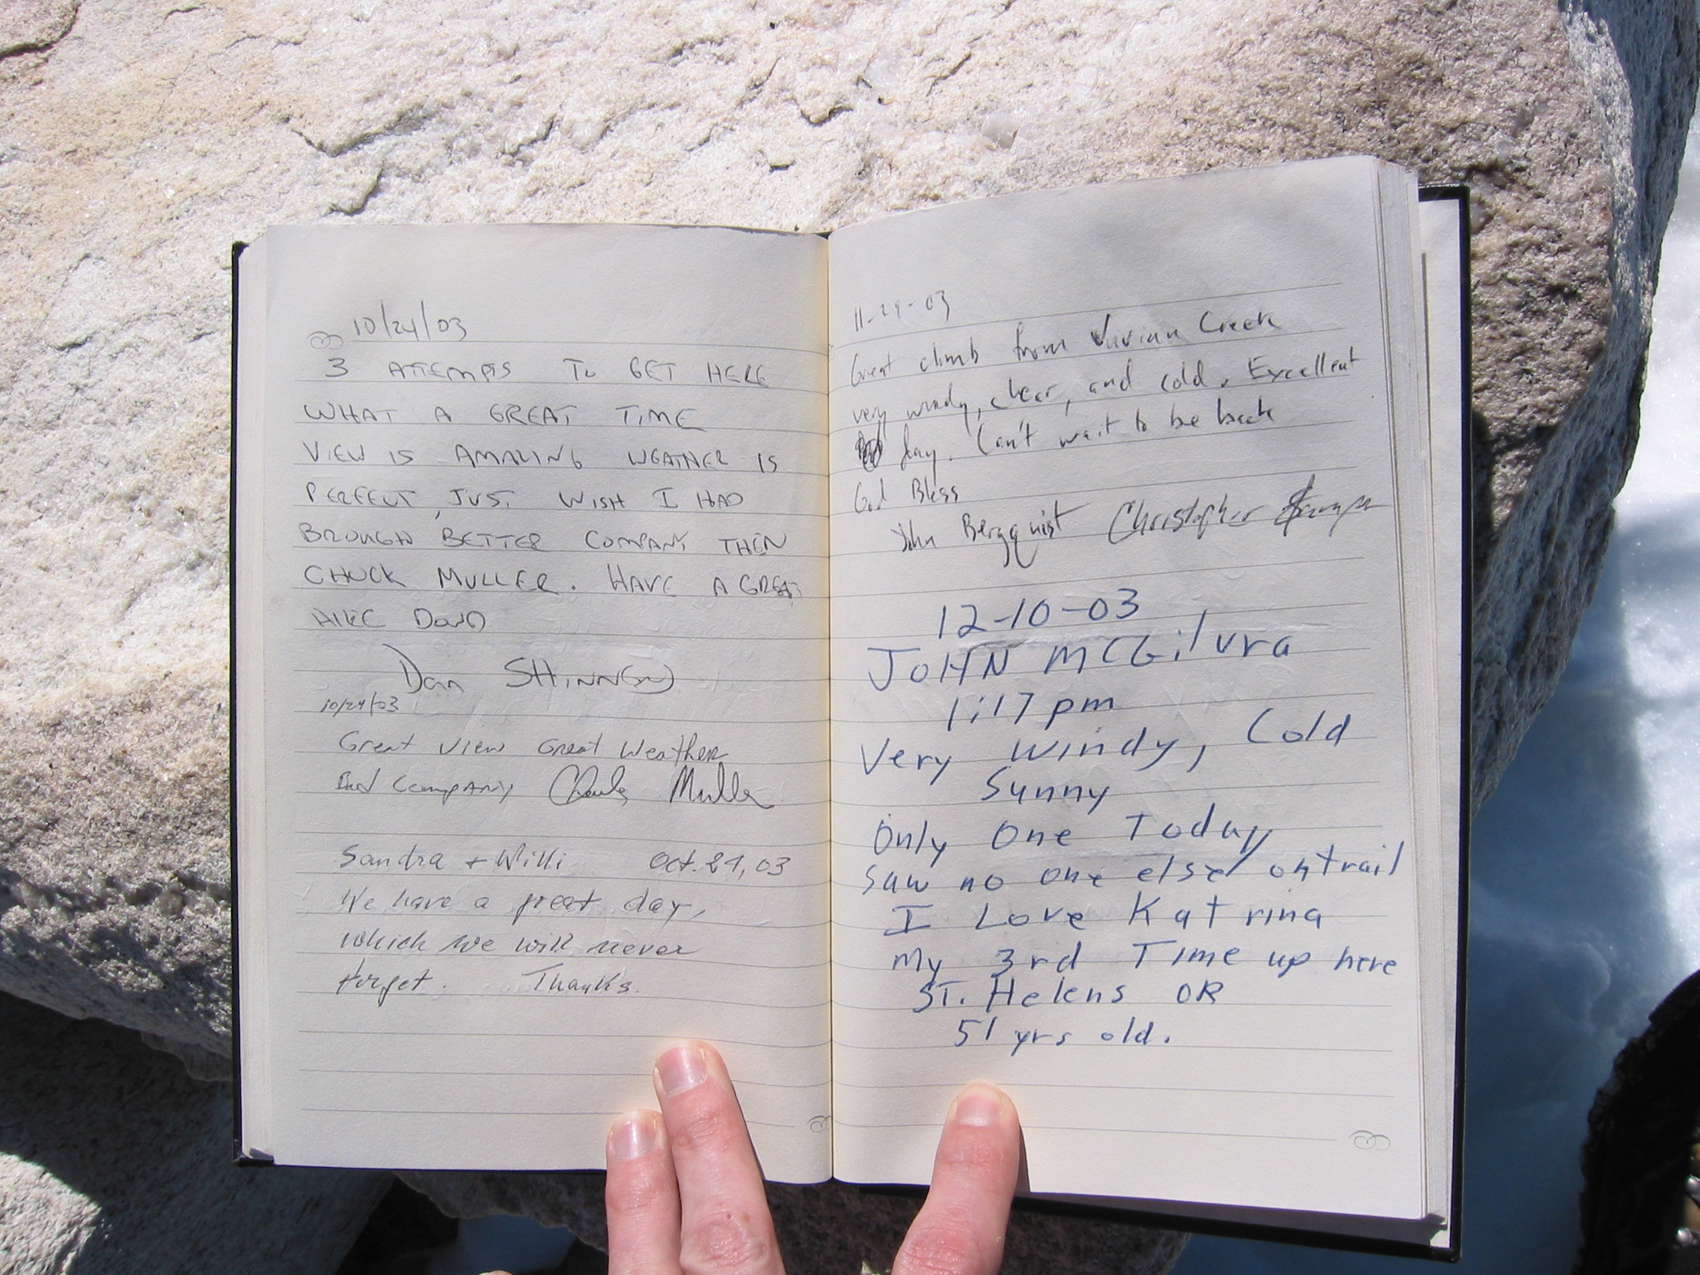 10/24/03
3 ATTEMPTS TO GET HERE
WHAT A GREAT TIME
VIEW IS AMAZING WEATHER IS
PERFECT, JUST WISH I HAD
BROUGH BETTER COMPANY THEN
CHUCK MULLER. HAVE A GREAT
HIKE DOWN
Dan
10/24/03
Great view Great Weather
Bad Company Charles Muller
Sandra + Willi Oct. 24, 03
We have a great day,
which we will never
forget. Thanks.
11-29-03
Great climb from Vivian Creek
very windy, clear, and cold. Excellent
day. Can't wait to be back
God Bless
John Bergquist Christopher
12-10-03
JOHN MCGilvra
1:17 pm
Very windy, Cold
Sunny
Only One Today
Saw no one else on trail
I Love Katrina
My 3rd Time up here
ST. Helens OR
51 yrs old.